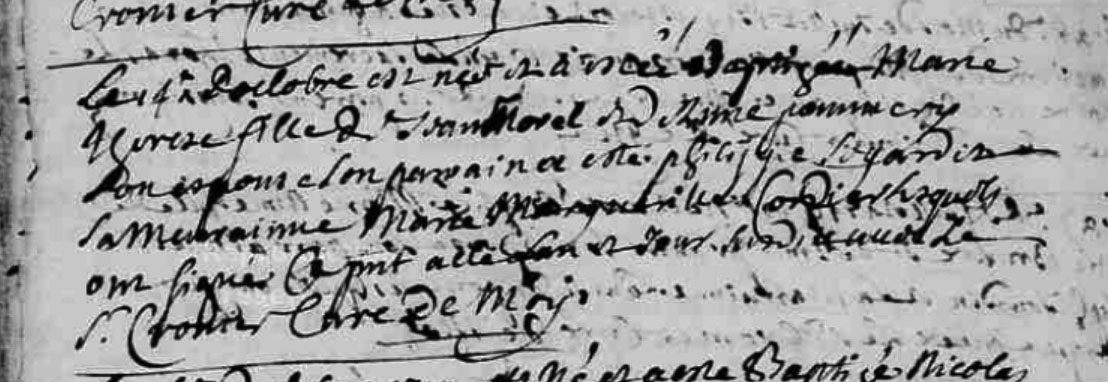 Cronier Curé de
Le 4e d'octobre est née et a estée Baptizée Marie
therese fille de Jean Morel et de
son espouse son parrain a esté philippe Dejardin
sa marainne Marie Marguerite Cordier lesquels
ont signé Ce pnt acte l'an et Jour susdit
S. Cronier Curé de Moÿ
né et a esté Baptisé Nicolas